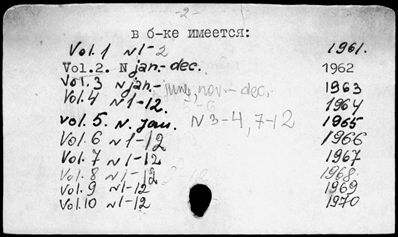 -2-
в б-ке имеется:
Vol. 1 N 1-2 1961.
Vol.2. N jan.- dec. 1962
Vol. 3 N jan.- june, nov.- dec. 1963
Vol. 4 N 1-12. 1964
Vol. 5. N. jan. N 3-4, 7-12 1965
Vol. 6 N 1-12 1966
Vol. 7 N 1-12 1967
Vol. 8 N 1-12 1968
Vol. 9 N 1-12 1969
Vol. 10 N 1-12 1970